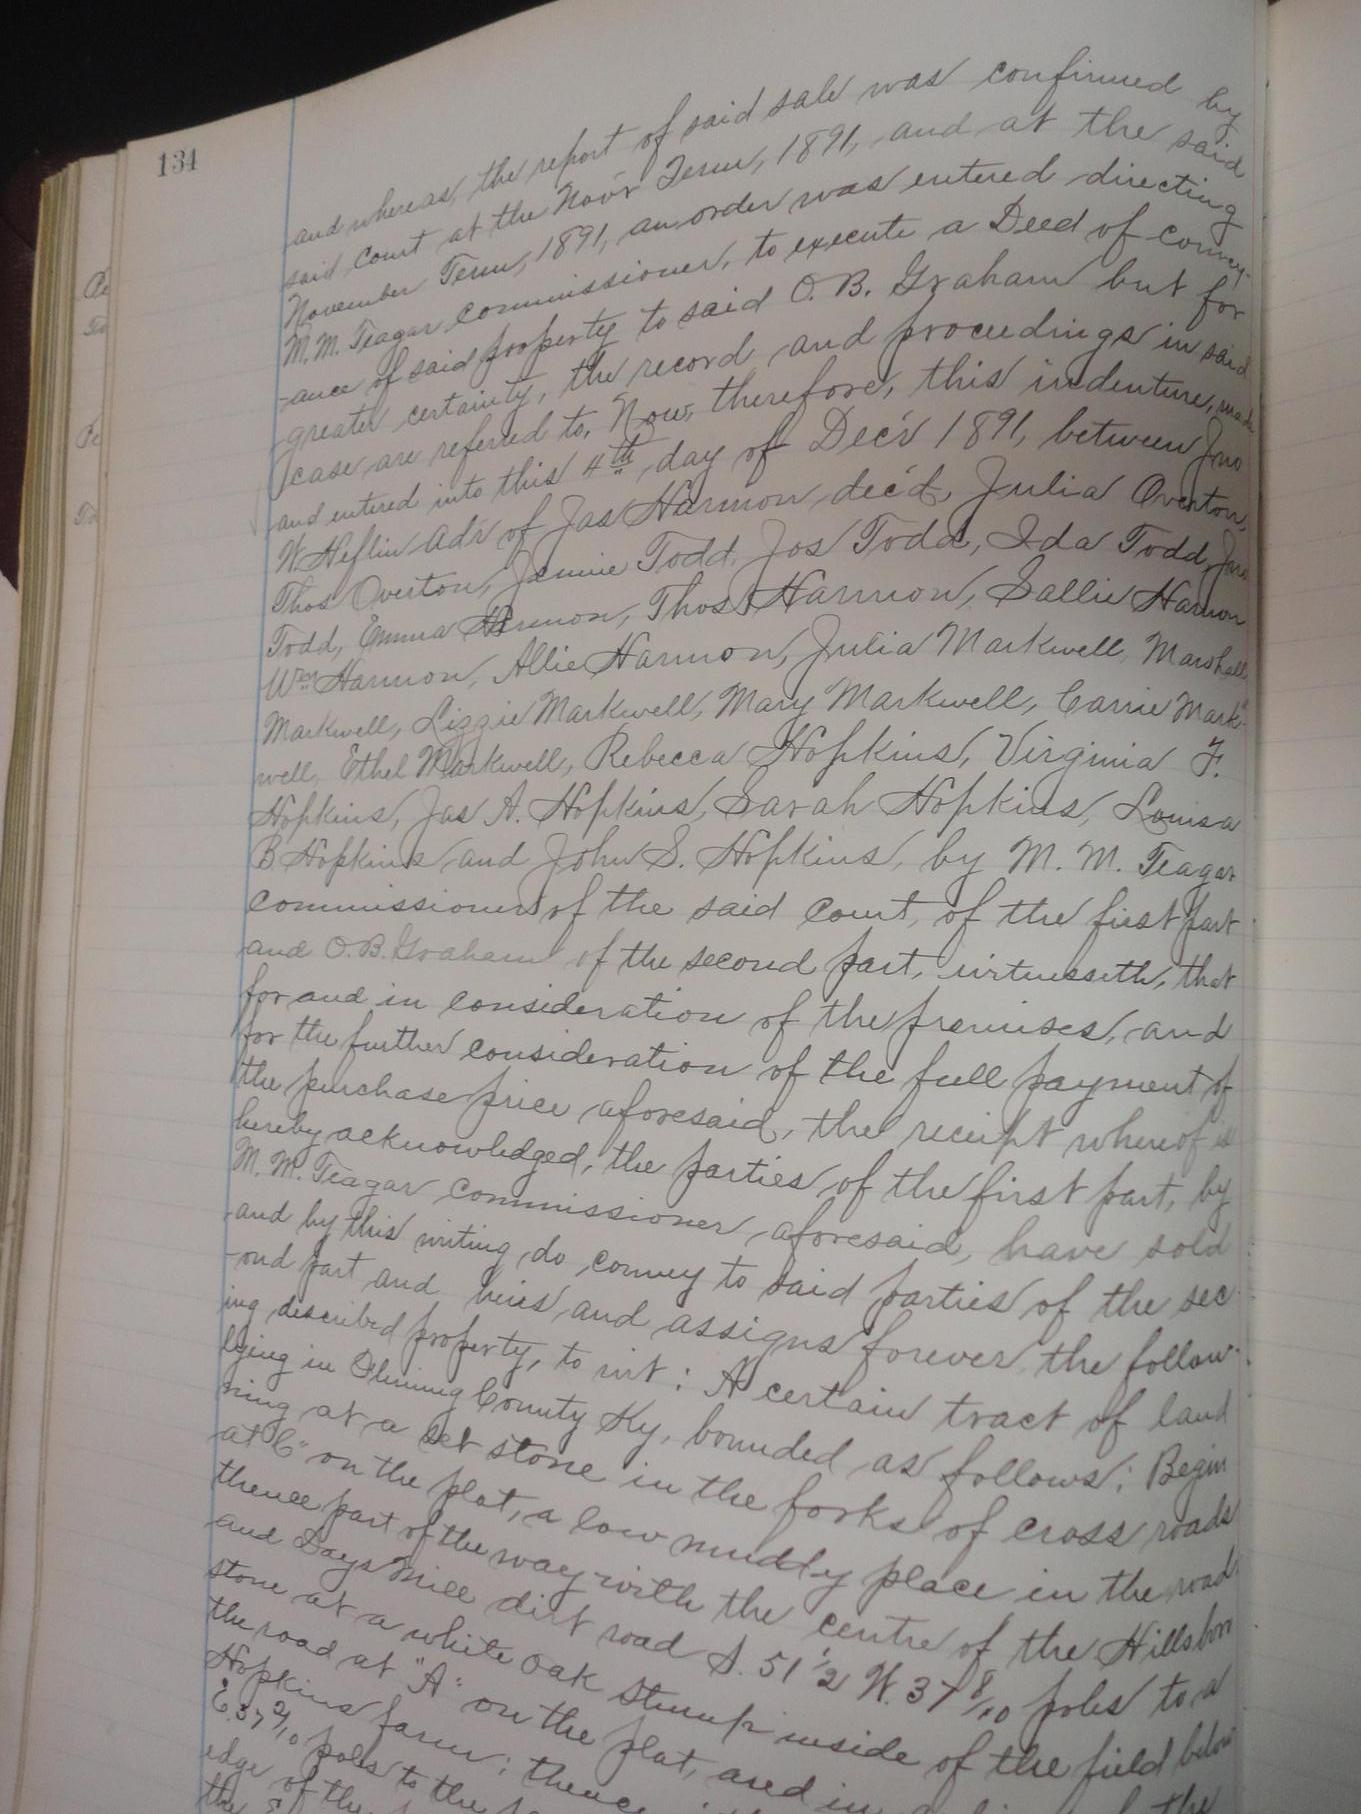 134
and whereas, the report of said sale was confirmed by
said court at the Nov'r Term, 1891, and at the said
November Term, 1891, an order was entered directing
M. M. Teagar commissioner, to execute a Deed of convey-
-ance of said property to said O. B. Graham but for
greater certainty, the record and proceedings in said
case are referred to. Now, therefore, this indenture, made
and entered into this 4th day of Dec'r 1891, between Jno
W. Heflin adr of Jas Harmon dec'd, Julia Overton,
Thos Overton, Jennie Todd, Jos Todd, Ida Todd,
Todd, Emma Harmon, Thos Harmon, Sallie Harmon
Wm Harmon, Allie Harmon, Julia Markwell, Marshall
Markwell, Lizzie Markwell, Mary Markwell, Carrie Mark-
well, Ethel Markwell, Rebecca Hopkins, Virginia F.
Hopkins, Jas A. Hopkins, Sarah Hopkins, Louisa
B. Hopkins and John S. Hopkins, by M. M. Teagar
commissioner of the said court, of the first part
and O. B. Graham of the second part, witnesseth, that
for and in consideration of the premises, and
for the further consideration of the full payment of
the purchase price aforesaid, the receipt whereof is
hereby acknowledged, the parties of the first part, by
M. M. Teagar commissioner aforesaid, have sold
and by this writing do convey to said parties of the sec-
-ond part and heirs and assigns forever the follow-
ing described property, to wit: A certain tract of land
lying in Fleming County Ky, bounded as follows: Begin
ning at a set stone in the forks of cross roads
at "C" on the plat, a low muddy place in the road
thence part of the way with the centre of the Hillsboro
and Days Mill dirt road S. 51 1/2 W. 37 8/10 poles to a
stone at a white oak stump inside of the field below
the road at "A" on the plat, and in
Hopkins farm; thence
E. 37 2/10 poles to the
edge of the
the